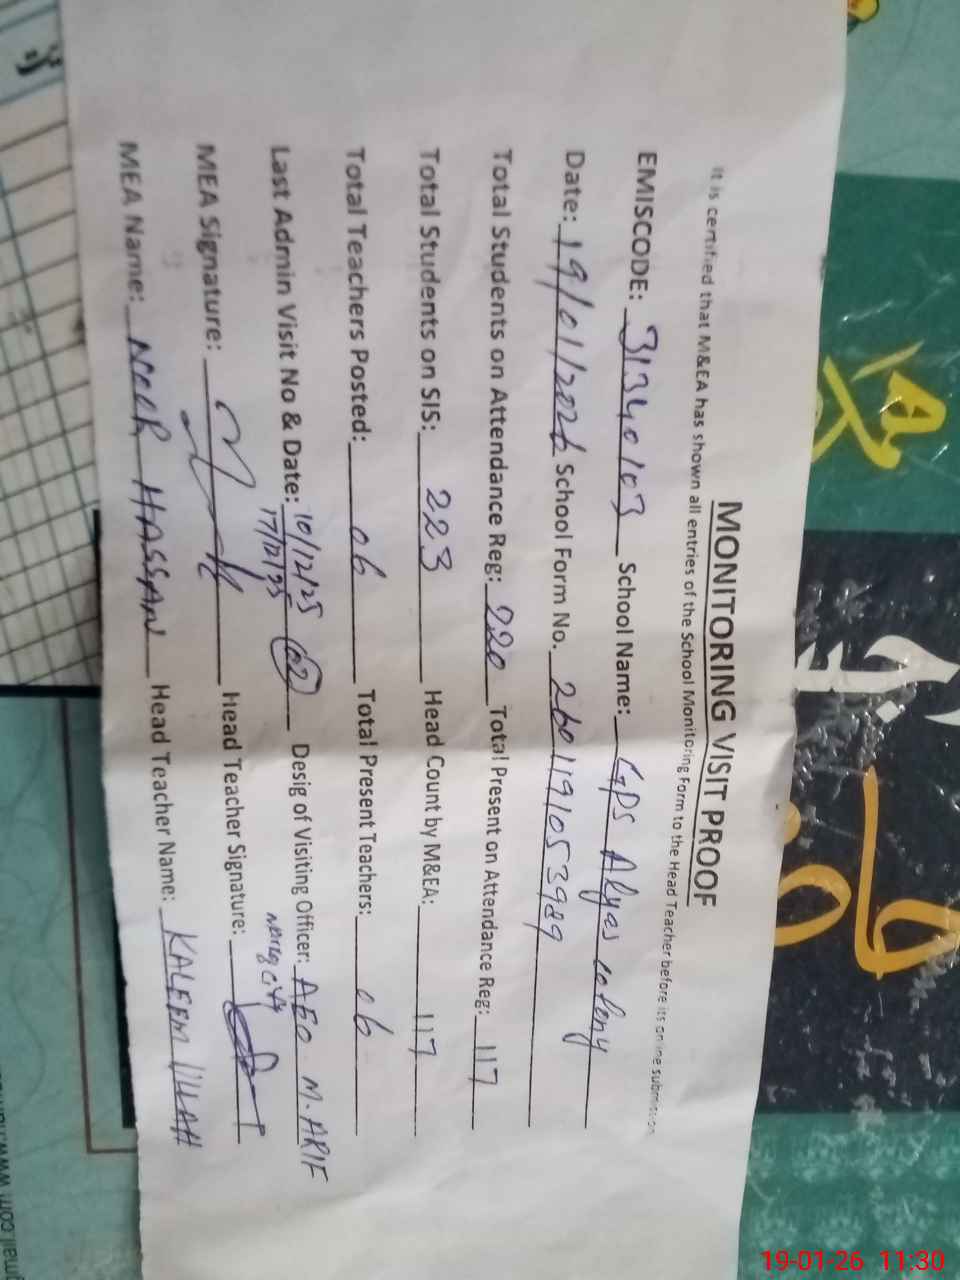 MONITORING VISIT PROOF
It is certified that M&EA has shown all entries of the School Monitoring Form to the Head Teacher before its online submission
EMISCODE: 31340103 School Name: GPS Alyas colony
Date: 19/01/2026 School Form No. 2601191053989
Total Students on Attendance Reg: 220 Total Present on Attendance Reg: 117
Total Students on SIS: 223 Head Count by M&EA: 117
Total Teachers Posted: 06 Total Present Teachers: 06
Last Admin Visit No & Date: 10/12/25 02 Desig of Visiting Officer: AEO M. ARIF
17/12/25
MEA Signature: Head Teacher Signature:
MEA Name: NOOR HASSAN Head Teacher Name: KALEEM ULLAH
19-01-26 11:30